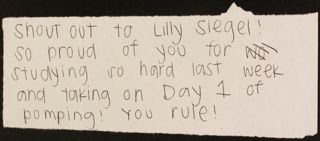 Shout out to Lilly Siegel!
So proud of you for
studying so hard last week
and taking on Day 1 of
pomping! You rule!